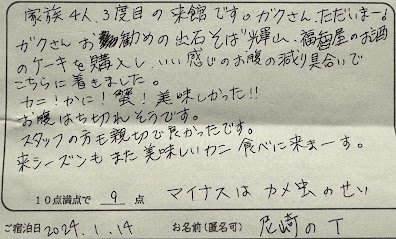 家族4人、3度目の来館です。ガクさん、ただいまー!
ガクさんお勧めの出石そば"輝山、福智屋のお酒
のケーキを購入し、いい感じのお腹の減り具合いで
こちらに着きました。
カニ!かに!蟹!美味しかった!!
お腹はち切れそうです。
スタッフの方も親切で良かったです。
来シーズンもまた美味しいカニ食べに来まーす。
10点満点で 9 点 マイナスは カメ虫のせい
ご宿泊日 2024.1.14 お名前(匿名可) 尼崎のT